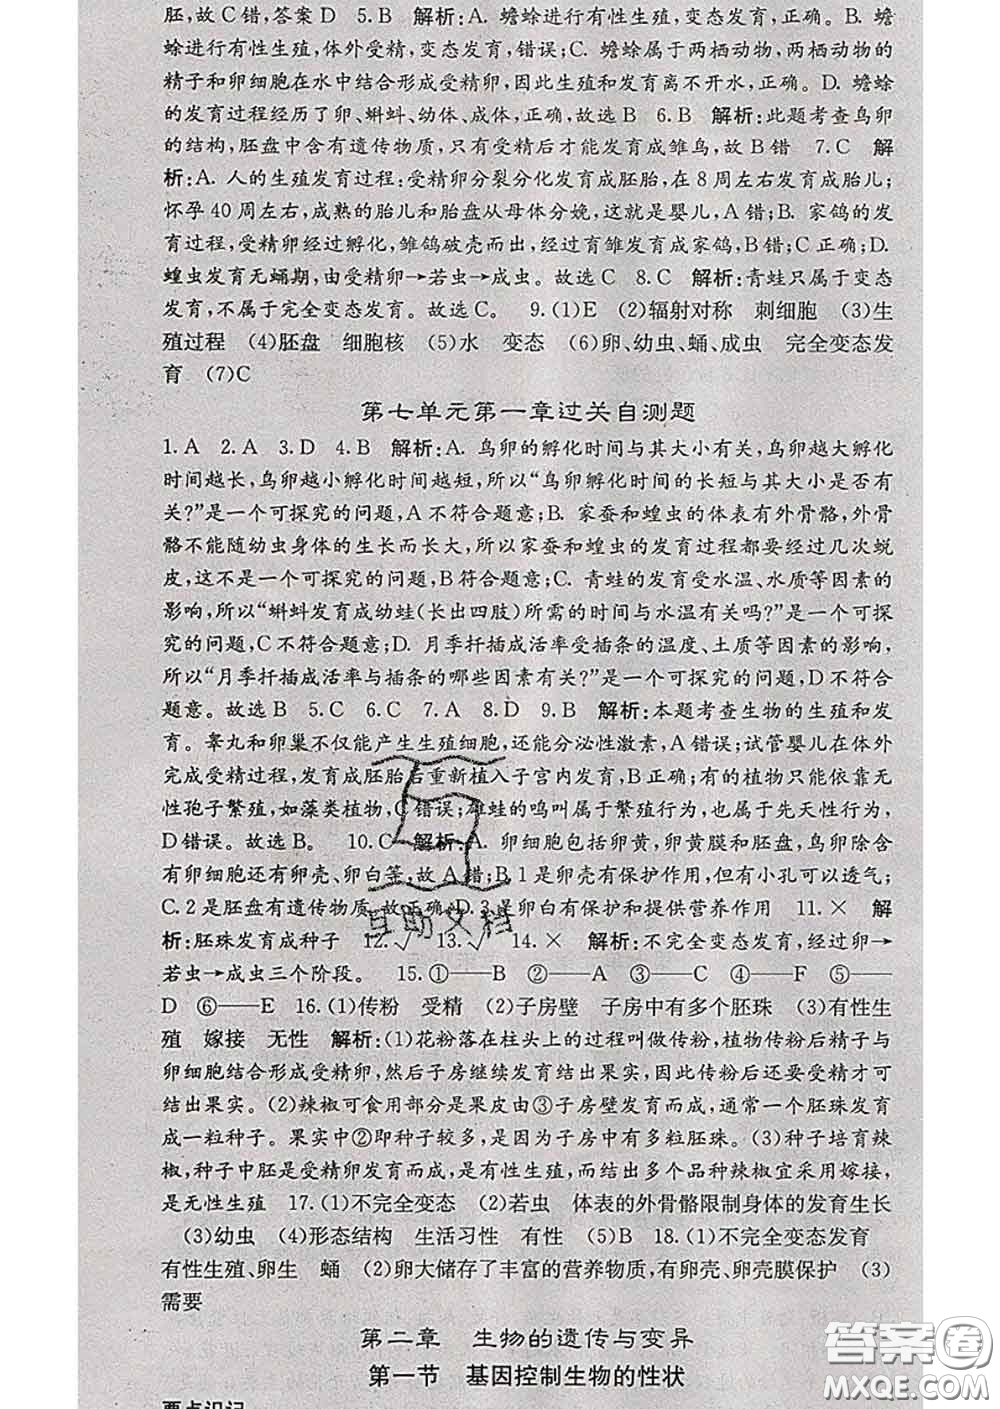 胚,故C错,答案D 5.B 解析:A. 蟾蜍进行有性生殖,变态发育,正确。B. 蟾
蜍进行有性生殖,体外受精,变态发育,错误;C. 蟾蜍属于两栖动物,两栖动物的
精子和卵细胞在水中结合形成受精卵,因此生殖和发育离不开水,正确。D. 蟾蜍
的发育过程经历了卵、蝌蚪、幼体、成体,正确,故选B 6.B 解析:此题考查鸟卵
的结构,胚盘中含有遗传物质,只有受精后才能发育成雏鸟,故B错 7.C 解
析:A. 人的生殖发育过程:受精卵分裂分化发育成胚胎,在8周左右发育成胎儿;
怀孕40周左右,成熟的胎儿和胎盘从母体分娩,这就是婴儿,A错;B. 家鸽的发
育过程,受精卵经过孵化,雏鸽破壳而出,经过育雏发育成家鸽,B错;C正确;D.
蝗虫发育无蛹期,由受精卵→若虫→成虫。故选C 8.C 解析:青蛙只属于变态
发育,不属于完全变态发育。故选C。 9.(1)E (2)辐射对称 刺细胞 (3)生
殖过程 (4)胚盘 细胞核 (5)水 变态 (6)卵、幼虫、蛹、成虫 完全变态发
育 (7)C
第七单元第一章过关自测题
1.A 2.A 3.D 4.B 解析:A. 鸟卵的孵化时间与其大小有关,鸟卵越大孵化
时间越长,鸟卵越小孵化时间越短,所以“鸟卵孵化时间的长短与其大小是否有
关?”是一个可探究的问题,A不符合题意;B. 家蚕和蝗虫的体表有外骨骼,外骨
骼不能随幼虫身体的生长而长大,所以家蚕和蝗虫的发育过程都要经过几次蜕
皮,这不是一个可探究的问题,B符合题意;C. 青蛙的发育受水温、水质等因素的
影响,所以“蝌蚪发育成幼蛙(长出四肢)所需的时间与水温有关吗?”是一个可探
究的问题,C不符合题意;D. 月季扦插成活率受插条的温度、土质等因素的影响,
所以“月季扦插成活率与插条的哪些因素有关?”是一个可探究的问题,D不符合
题意。故选B 5.C 6.C 7.A 8.D 9.B 解析:本题考查生物的生殖和发
育。睾丸和卵巢不仅能产生生殖细胞,还能分泌性激素,A错误;试管婴儿在体外
完成受精过程,发育成胚胎后重新植入子宫内发育,B正确;有的植物只能依靠无
性孢子繁殖,如藻类植物,C错误;雄蛙的鸣叫属于繁殖行为,也属于先天性行为,
D错误。故选B。 10.C 解析:A. 卵细胞包括卵黄,卵黄膜和胚盘,鸟卵除含
有卵细胞还有卵壳、卵白等,故A错;B.1是卵壳有保护作用,但有小孔可以透气;
C.2是胚盘有遗传物质,故正确;D.3是卵白有保护和提供营养作用 11.× 解
析:胚珠发育成种子 12.√ 13.√ 14.× 解析:不完全变态发育,经过卵→
若虫→成虫三个阶段。 15.①——B ②——A ③——C ④——F ⑤——
D ⑥——E 16.(1)传粉 受精 (2)子房壁 子房中有多个胚珠 (3)有性生
殖 嫁接 无性 解析:(1)花粉落在柱头上的过程叫做传粉,植物传粉后精子与
卵细胞结合形成受精卵,然后子房继续发育结出果实,因此传粉后还要受精才可
结出果实。(2)辣椒可食用部分是果皮由③子房壁发育而成,通常一个胚珠发育
成一粒种子。果实中②即种子较多,是因为子房中有多粒胚珠。(3)种子培育辣
椒,种子中胚是受精卵发育而成,是有性生殖,而结出多个品种辣椒宜采用嫁接,
是无性生殖 17.(1)不完全变态 (2)若虫 体表的外骨骼限制身体的发育生长
(3)幼虫 (4)形态结构 生活习性 有性 (5)B 18.(1)不完全变态发育
有性生殖、卵生 蛹 (2)卵大储存了丰富的营养物质,有卵壳、卵壳膜保护 (3)
需要
第二章 生物的遗传与变异
第一节 基因控制生物的性状
要点识记
互助文档
答案圈
MXQE.COM